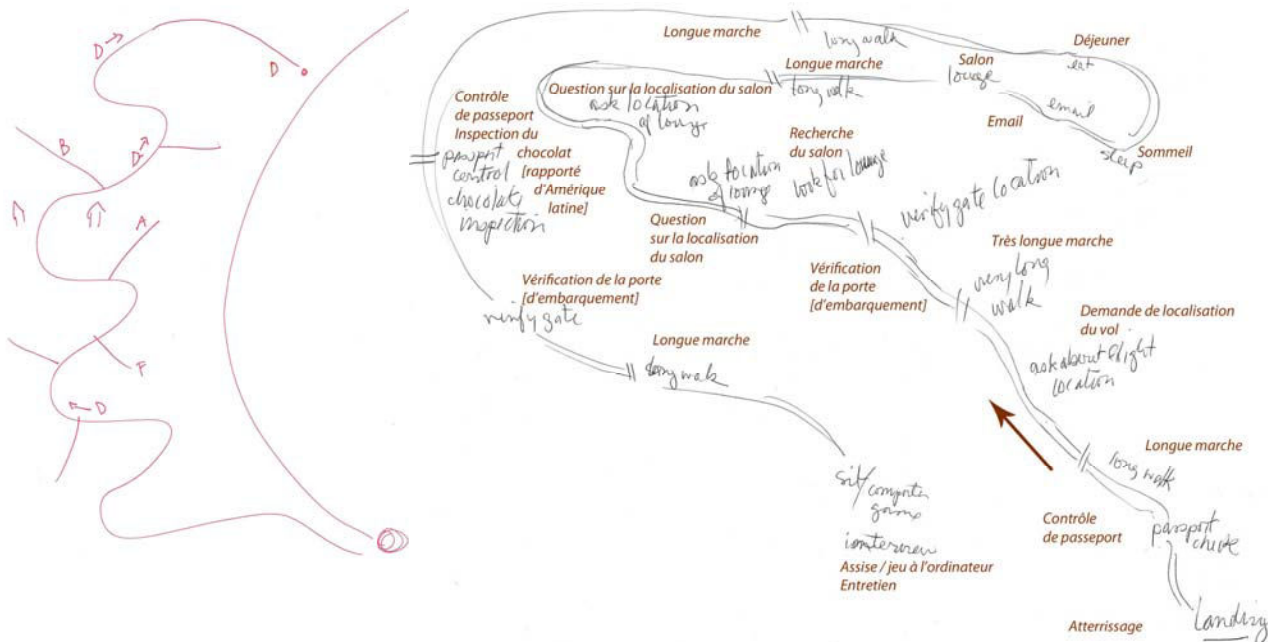 D→
D
B
D
A
F
←D
Longue marche
long walk
Déjeuner
eat
Longue marche
long walk
Salon
lounge
Question sur la localisation du salon
ask location
of lounge
Contrôle
de passeport
Inspection du
chocolat
[rapporté
d'Amérique
latine]
passport
control
chocolate
inspection
Email
email
Sommeil
sleep
Recherche
du salon
look for lounge
ask location
of lounge
Question
sur la localisation
du salon
verify gate location
Vérification
de la porte
[d'embarquement]
Très longue marche
very long
walk
Vérification de la porte
[d'embarquement]
verify gate
Longue marche
long walk
Demande de localisation
du vol
ask about flight
location
Longue marche
long walk
sit/computer
Assise / jeu à l'ordinateur
Entretien
Contrôle
de passeport
passport
check
Atterrissage
Landing